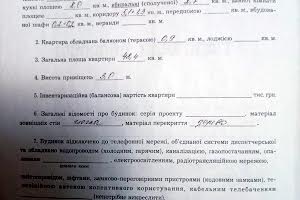 кухні площею 8.0 кв. м, вбиральні (сполученої) кв. м, ванної кімнати
площею кв. м, коридору кв. м, передпокою кв. м, вбудова-
ної шафи кв. м, веранди кв. м.
2. Квартира обладнана балконом (терасою) 0,9 кв. м, лоджією кв. м.
3. Загальна площа квартири кв. м.
4. Висота приміщень кв. м.
5. Інвентаризаційна (балансова) вартість квартири тис. грн.
6. Загальні відомості про будинок: серія проекту , матеріал
зовнішніх стін цегла , матеріал перекриття дерево
7. Будинок підключено до телефонної мережі, об'єднаної системи диспетчерської
та обладнано водопроводом (холодним, гарячим), каналізацією, газопостачанням,
опаленням, електроосвітленням, радіотрансляційною мережею,
сміттєпроводом, ліфтами, замково-переговорними пристроями (кодовими замками), те-
левізійною антеною колективного користування, кабельним телебаченням